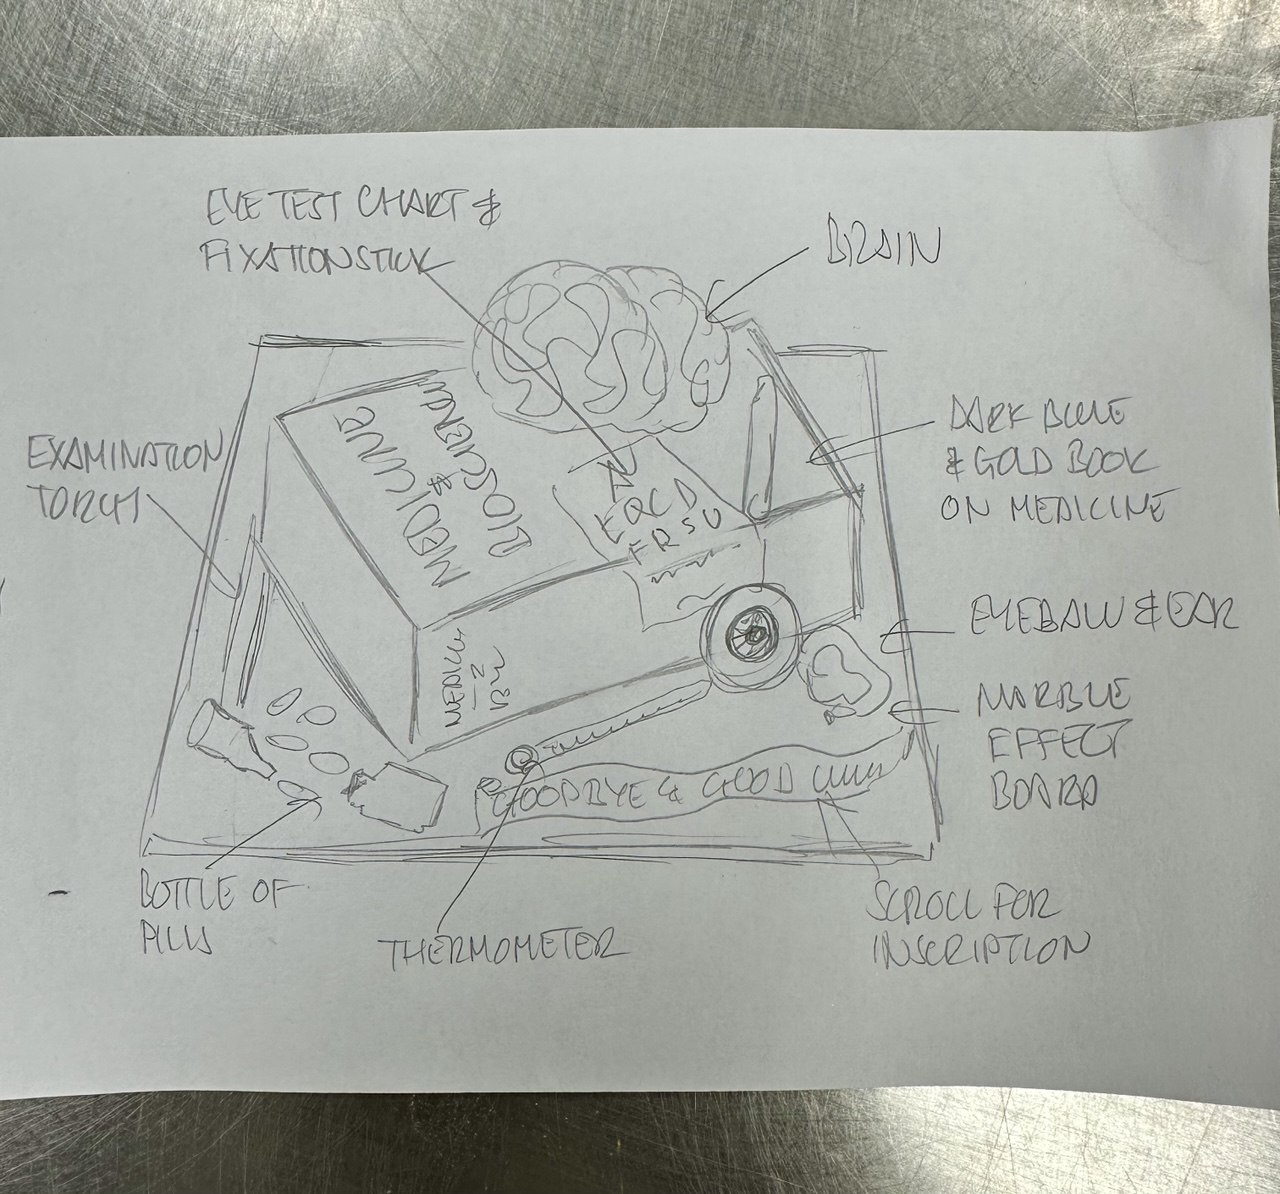 EYE TEST CHART &
FIXATION STICK
BRAIN
EXAMINATION
TORCH
MEDICINE
&
BIOSCIENCE
DARK BLUE
& GOLD BOOK
ON MEDICINE
EQCD
FRSU
EYEBALL & EAR
MARBLE
EFFECT
BOARD
GOODBYE & GOOD LUCK
BOTTLE OF
PILLS
THERMOMETER
SCROLL FOR
INSCRIPTION